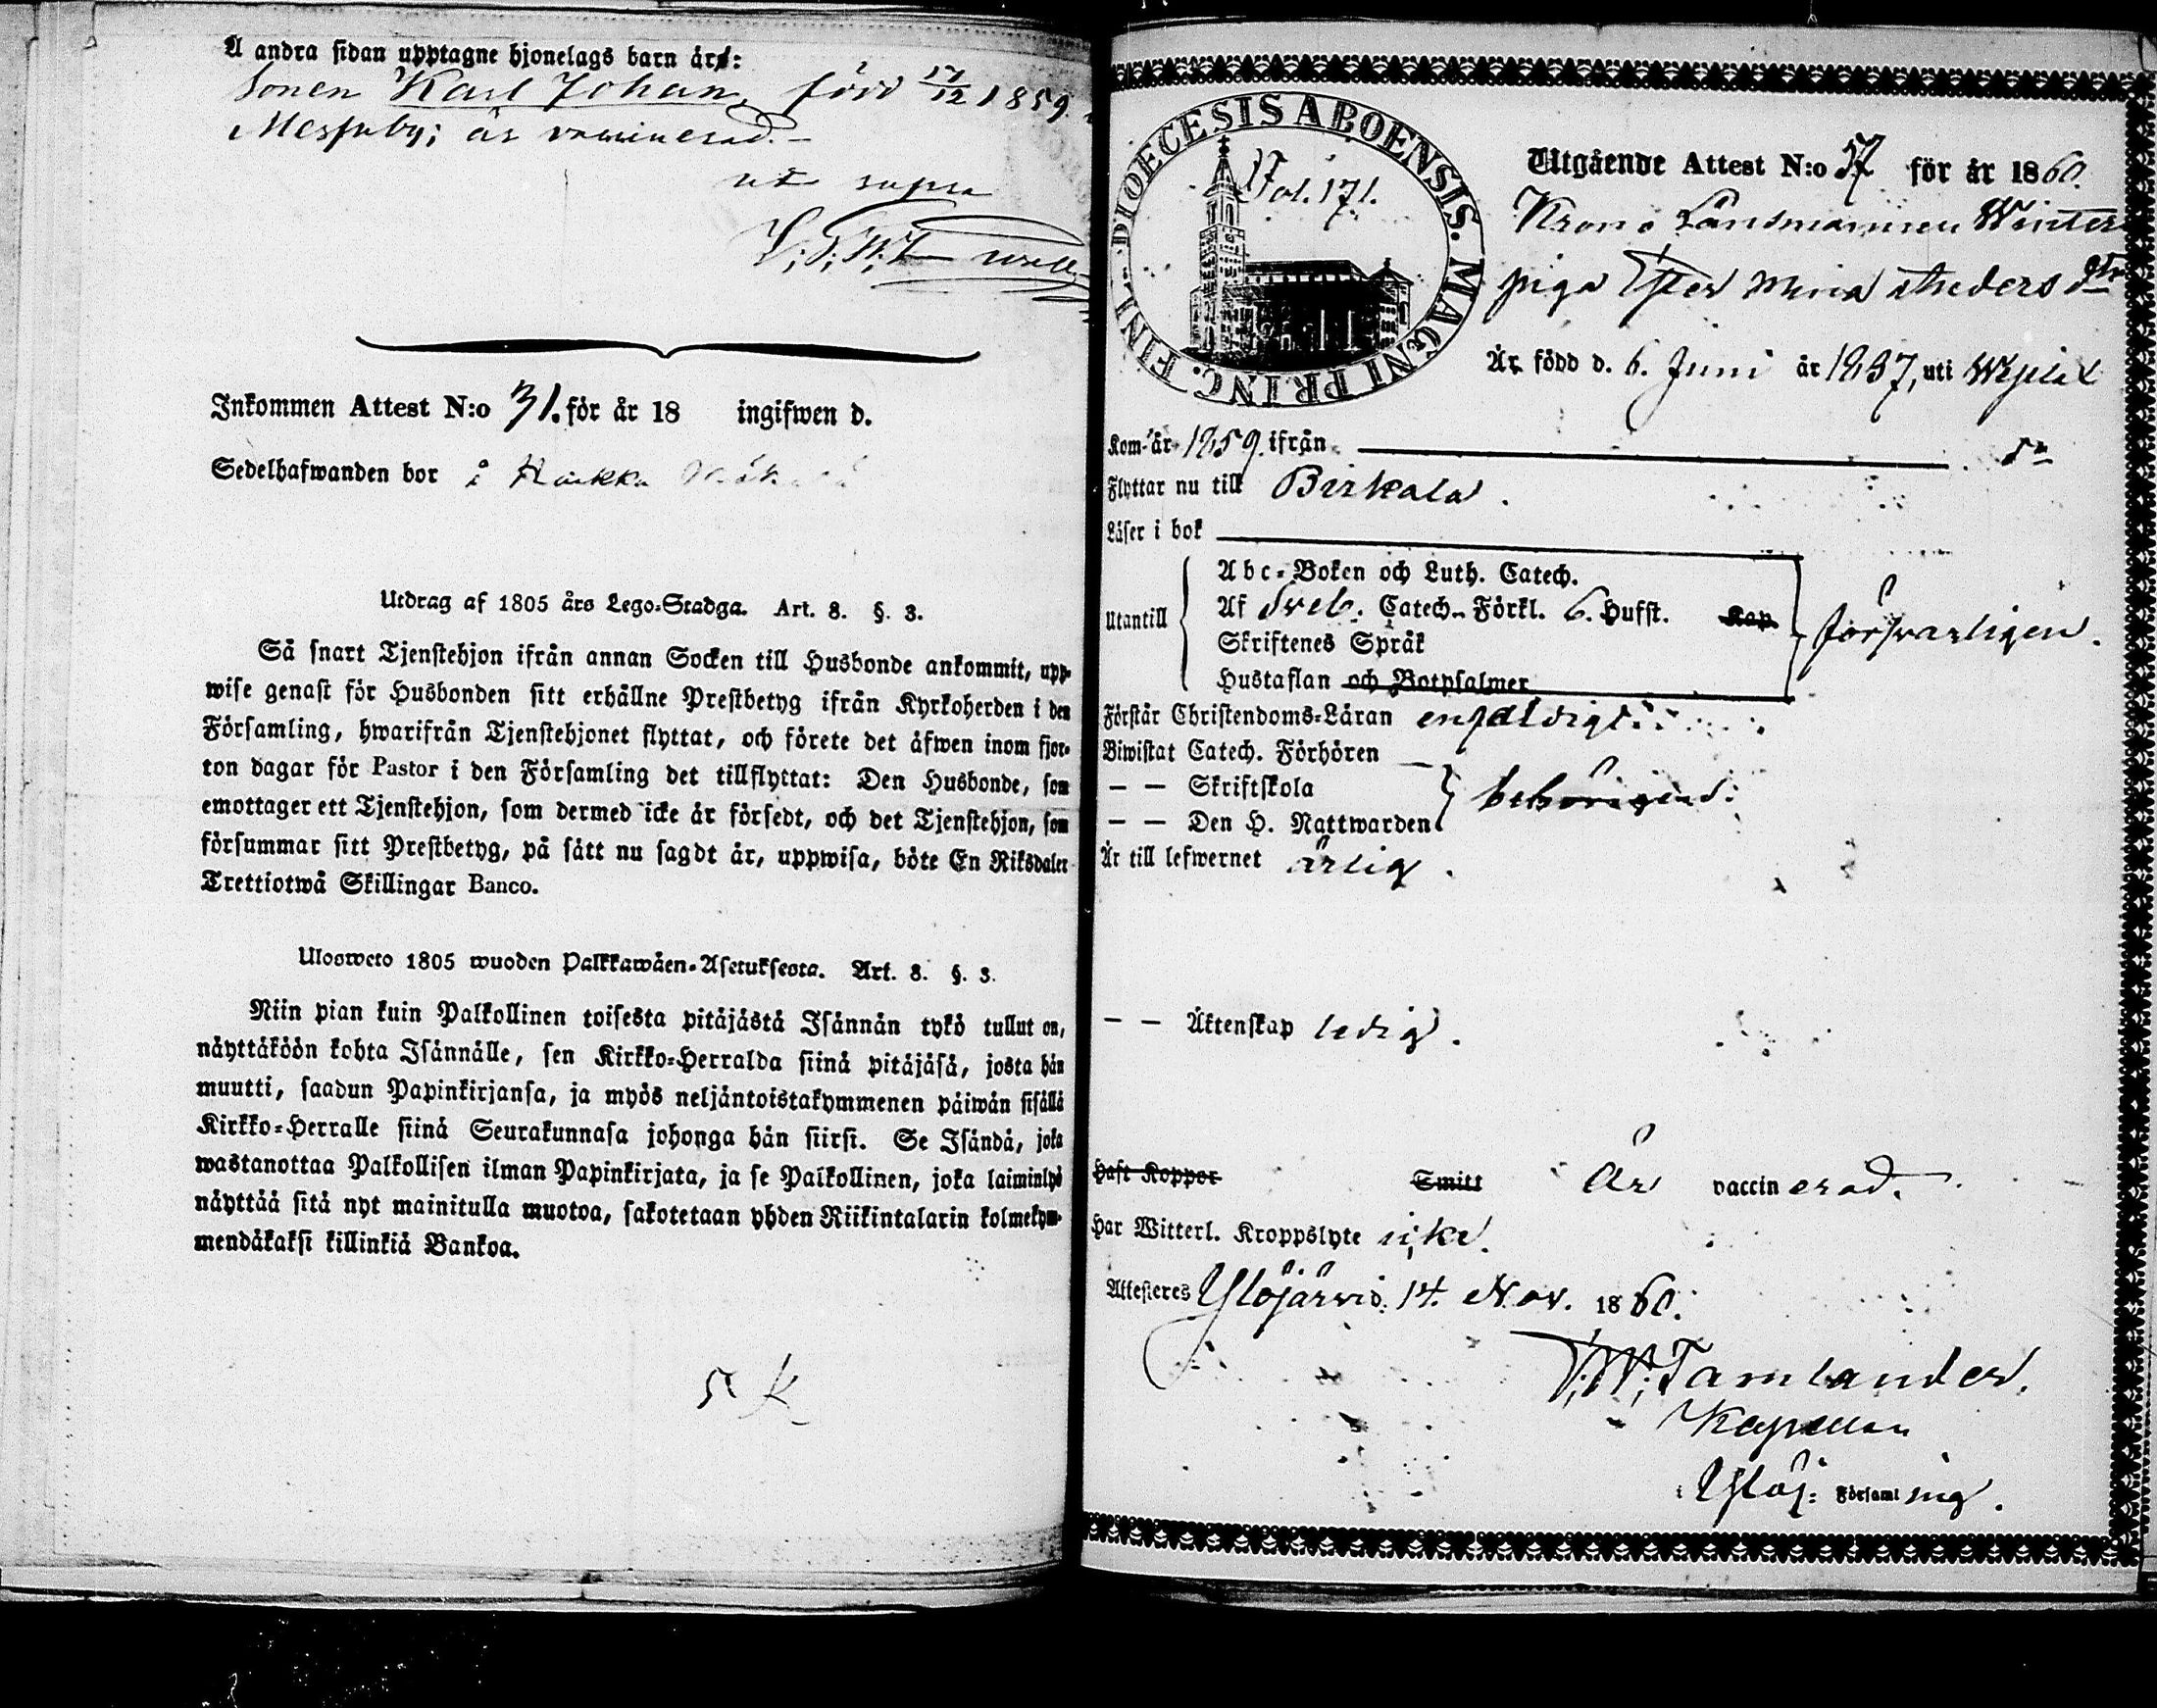 A andra sidan upptagne hjonelags barn äro:
Sonen Karl Johan, född 17/12 1859.
Messuby; är vaccinerad.
ut supra
Inkommen Attest N:o 31. för år 18 ingifwen d.
Sedelhafwanden bor å
Utdrag af 1805 års Lego-Stadga. Art. 8. §. 3.
Så snart Tjenstehjon ifrån annan Socken till Husbonde ankommit, upp-
wise genast för Husbonden sitt erhållne Prestbetyg ifrån Kyrkoherden i den
Församling, hwarifrån Tjenstehjonet flyttat, och förete det äfwen inom fjor-
ton dagar för Pastor i den Församling det tillflyttat: Den Husbonde, som
emottager ett Tjenstehjon, som dermed icke är försedt, och det Tjenstehjon, som
försummar sitt Prestbetyg, på sätt nu sagdt är, uppwisa, böte En Riksdaler
Trettiotwå Skillingar Banco.
Ulosweto 1805 wuoden Palkkawäen-Asetuksesta. Art. 8. §. 3.
Niin pian kuin Palkollinen toisesta pitäjästä Isännän tykö tullut on,
näyttäköön kohta Isännälle, sen Kirkko-Herralda siinä pitäjäsä, josta hän
muutti, saadun Papinkirjansa, ja myös neljäntoistakymmenen päiwän sisällä
Kirkko-Herralle siinä Seurakunnasa johonga hän siirsi. Se Isändä, joka
wastanottaa Palkollisen ilman Papinkirjata, ja se Palkollinen, joka laiminlyö
näyttää sitä nyt mainitulla muotoa, sakotetaan yhden Riikintalarin kolmekym-
mendäkaksi killinkiä Bankoa.
5 K
DIOECESIS ABOENSIS. MAGNI PRINC. FINL.
Fol. 171.
Utgående Attest N:o 57 för år 1860.
Krono Länsmannen Winters
piga Ester Maria Anders dtr
Är född d. 6. Juni år 1837, uti
Kom år 1859. ifrån dn
Flyttar nu till Birkala.
Läser i bok
Utantill
Abc-Boken och Luth. Catech.
Af Sveb. Catech. Förkl. 6. Hufst. Kap.
Skriftenes Språk
Hustaflan och Botpsalmer
försvarligen.
Förstår Christendoms-Läran enfaldigt.
Biwistat Catech. Förhören
— — Skriftskola
— — Den H. Nattwarden
behörigen
Är till lefwernet ärlig.
— — Äktenskap ledig.
Haft Koppor Smitt Är vaccinerad.
Har Witterl. Kroppslyte icke.
Attesteres Ylöjärvi d. 14. Nov. 1860.
F. W. Tamlander.
Kapellan
i Ylöj: Församling.